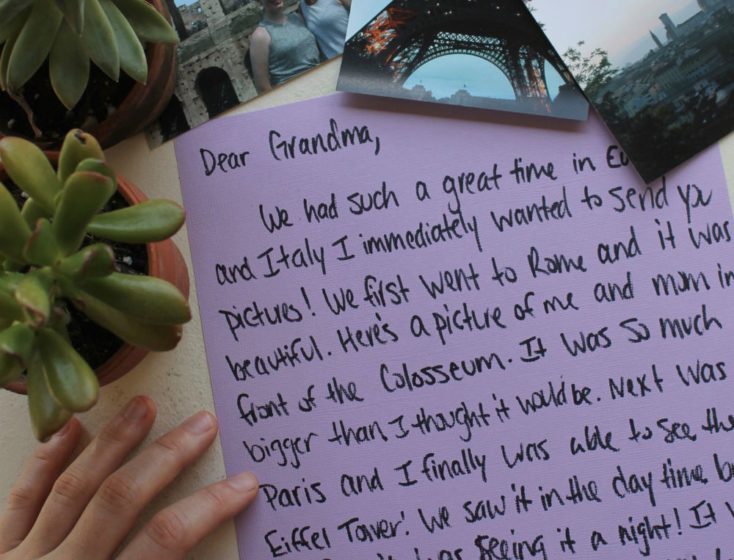 Dear Grandma,
We had such a great time in
and Italy I immediately wanted to send you
pictures! We first went to Rome and it was
beautiful. Here's a picture of me and mom in
front of the Colosseum. It was so much
bigger than I thought it would be. Next was
Paris and I finally was able to see the
Eiffel Tower! We saw it in the day time
seeing it a night! It